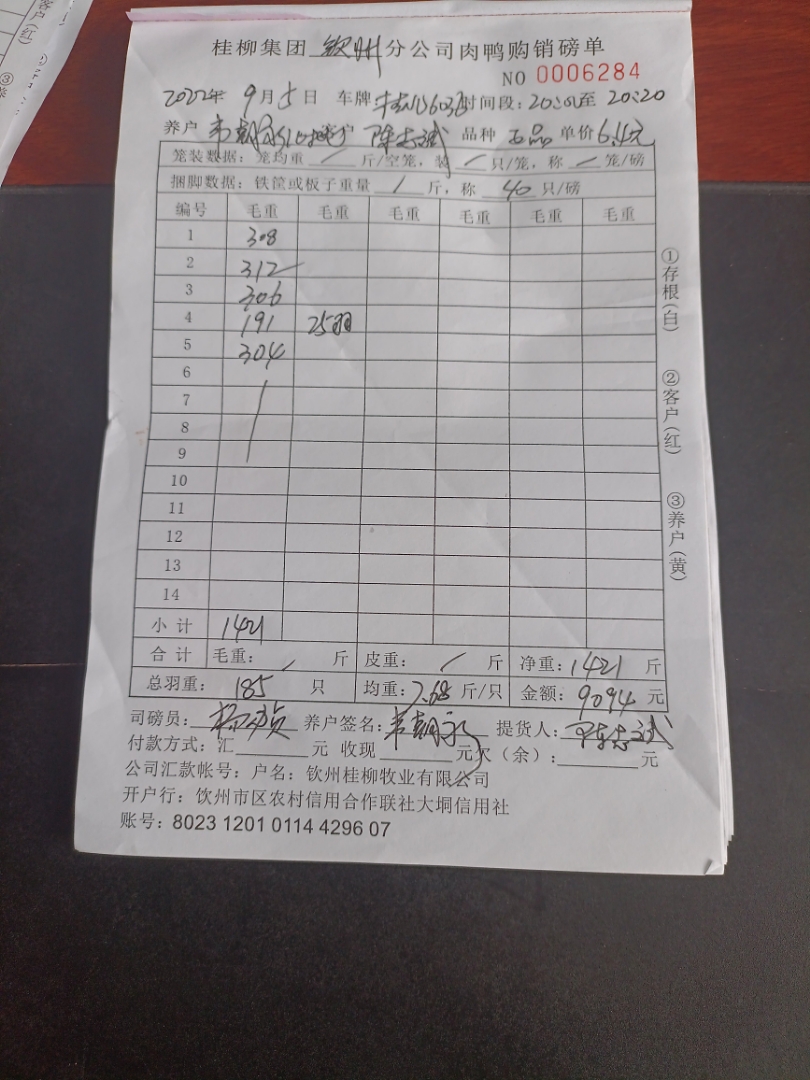 桂柳集团 钦州 分公司肉鸭购销磅单
NO 0006284
2022年 9月5日 车牌 时间段：20:01至 20:20
养户 韦朝永 陈志斌 品种 单价6.4元
笼装数据：笼均重 / 斤/空笼，装 / 只/笼，称 / 笼/磅
捆脚数据：铁筐或板子重量 / 斤，称 40 只/磅
编号 毛重 毛重 毛重 毛重 毛重 毛重
1 308
2 312
3 306
4 191 25羽
5 304
6
7
8
9
10
11
12
13
14
小计 1421
合计 毛重： / 斤 皮重： / 斤 净重：1421 斤
总羽重： 185 只 均重：7.68 斤/只 金额：9094 元
司磅员： 养户签名：韦朝永 提货人：陈志斌
付款方式：汇 元 收现 元欠（余）： 元
公司汇款帐号：户名：钦州桂柳牧业有限公司
开户行：饮州市区农村信用合作联社大垌信用社
账号：8023 1201 0114 4296 07
①存根（白）
②客户（红）
③养户（黄）
客户（红）
③养